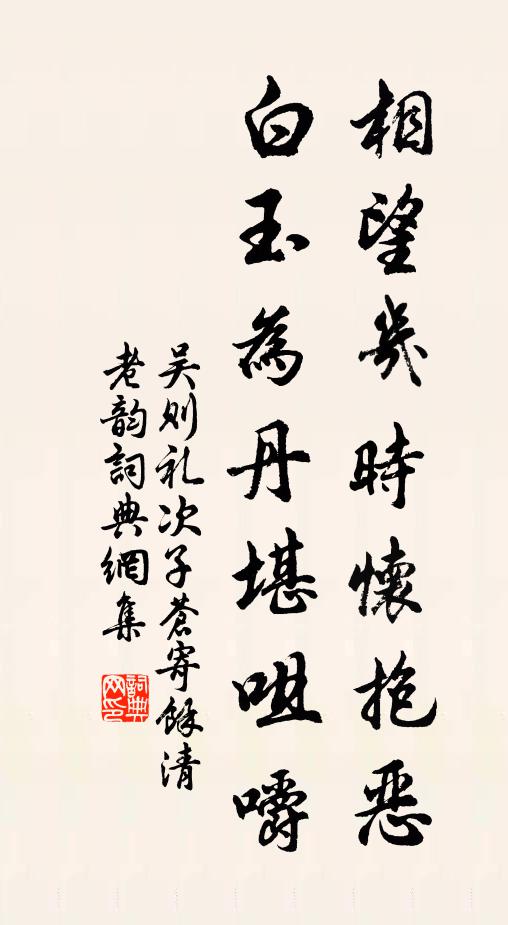 相望幾時懷抱惡
白玉為丹堪咀嚼
吴则礼次子蒼寄餘清
老韵詞典網集
詞典网印